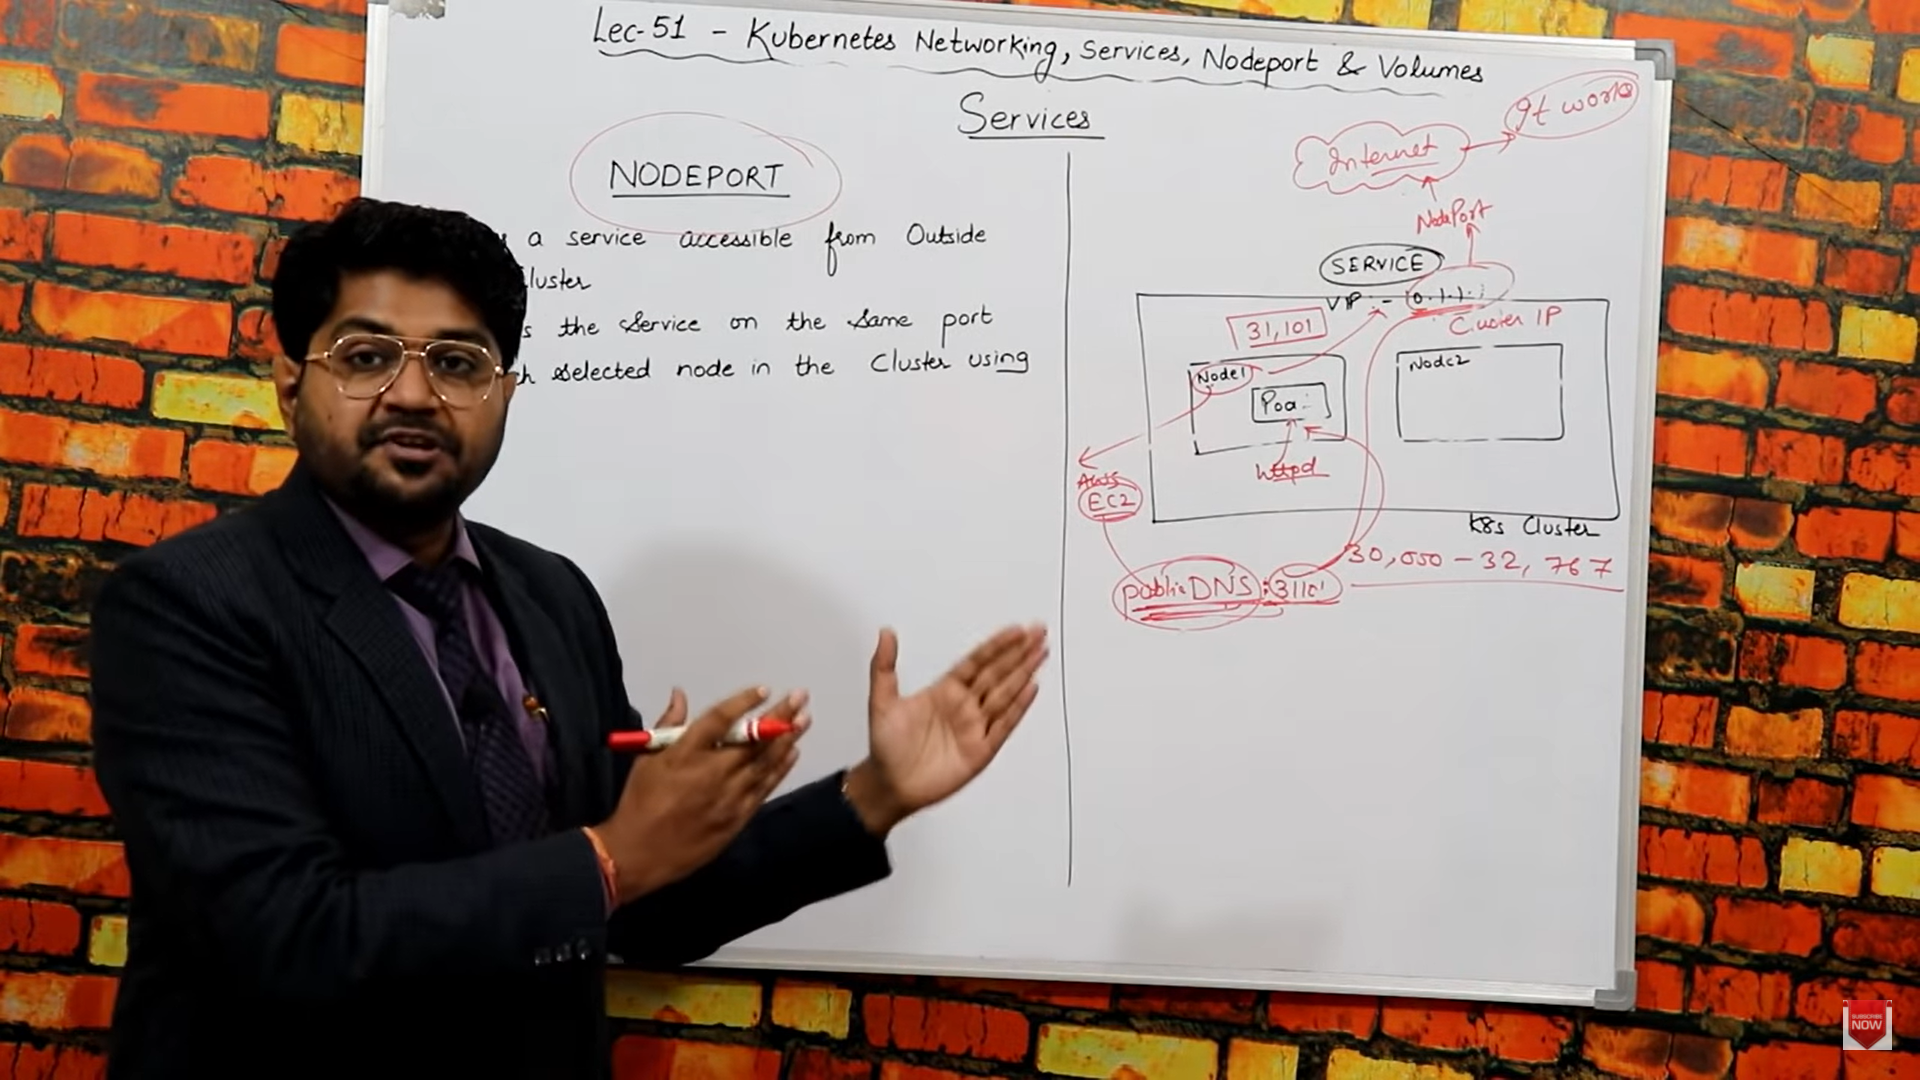 Lec-51 - Kubernetes Networking, Services, Nodeport & Volumes
Services
NODEPORT
a service accessible from Outside
Cluster
the Service on the Same port
selected node in the Cluster using
It works
Internet
NodePort
SERVICE
VIP :-
Cluster IP
31,101
Node1
Pod
httpd
Node2
AWS
EC2
K8s Cluster
30,000 - 32, 767
public DNS : 31101
SUBSCRIBE
NOW